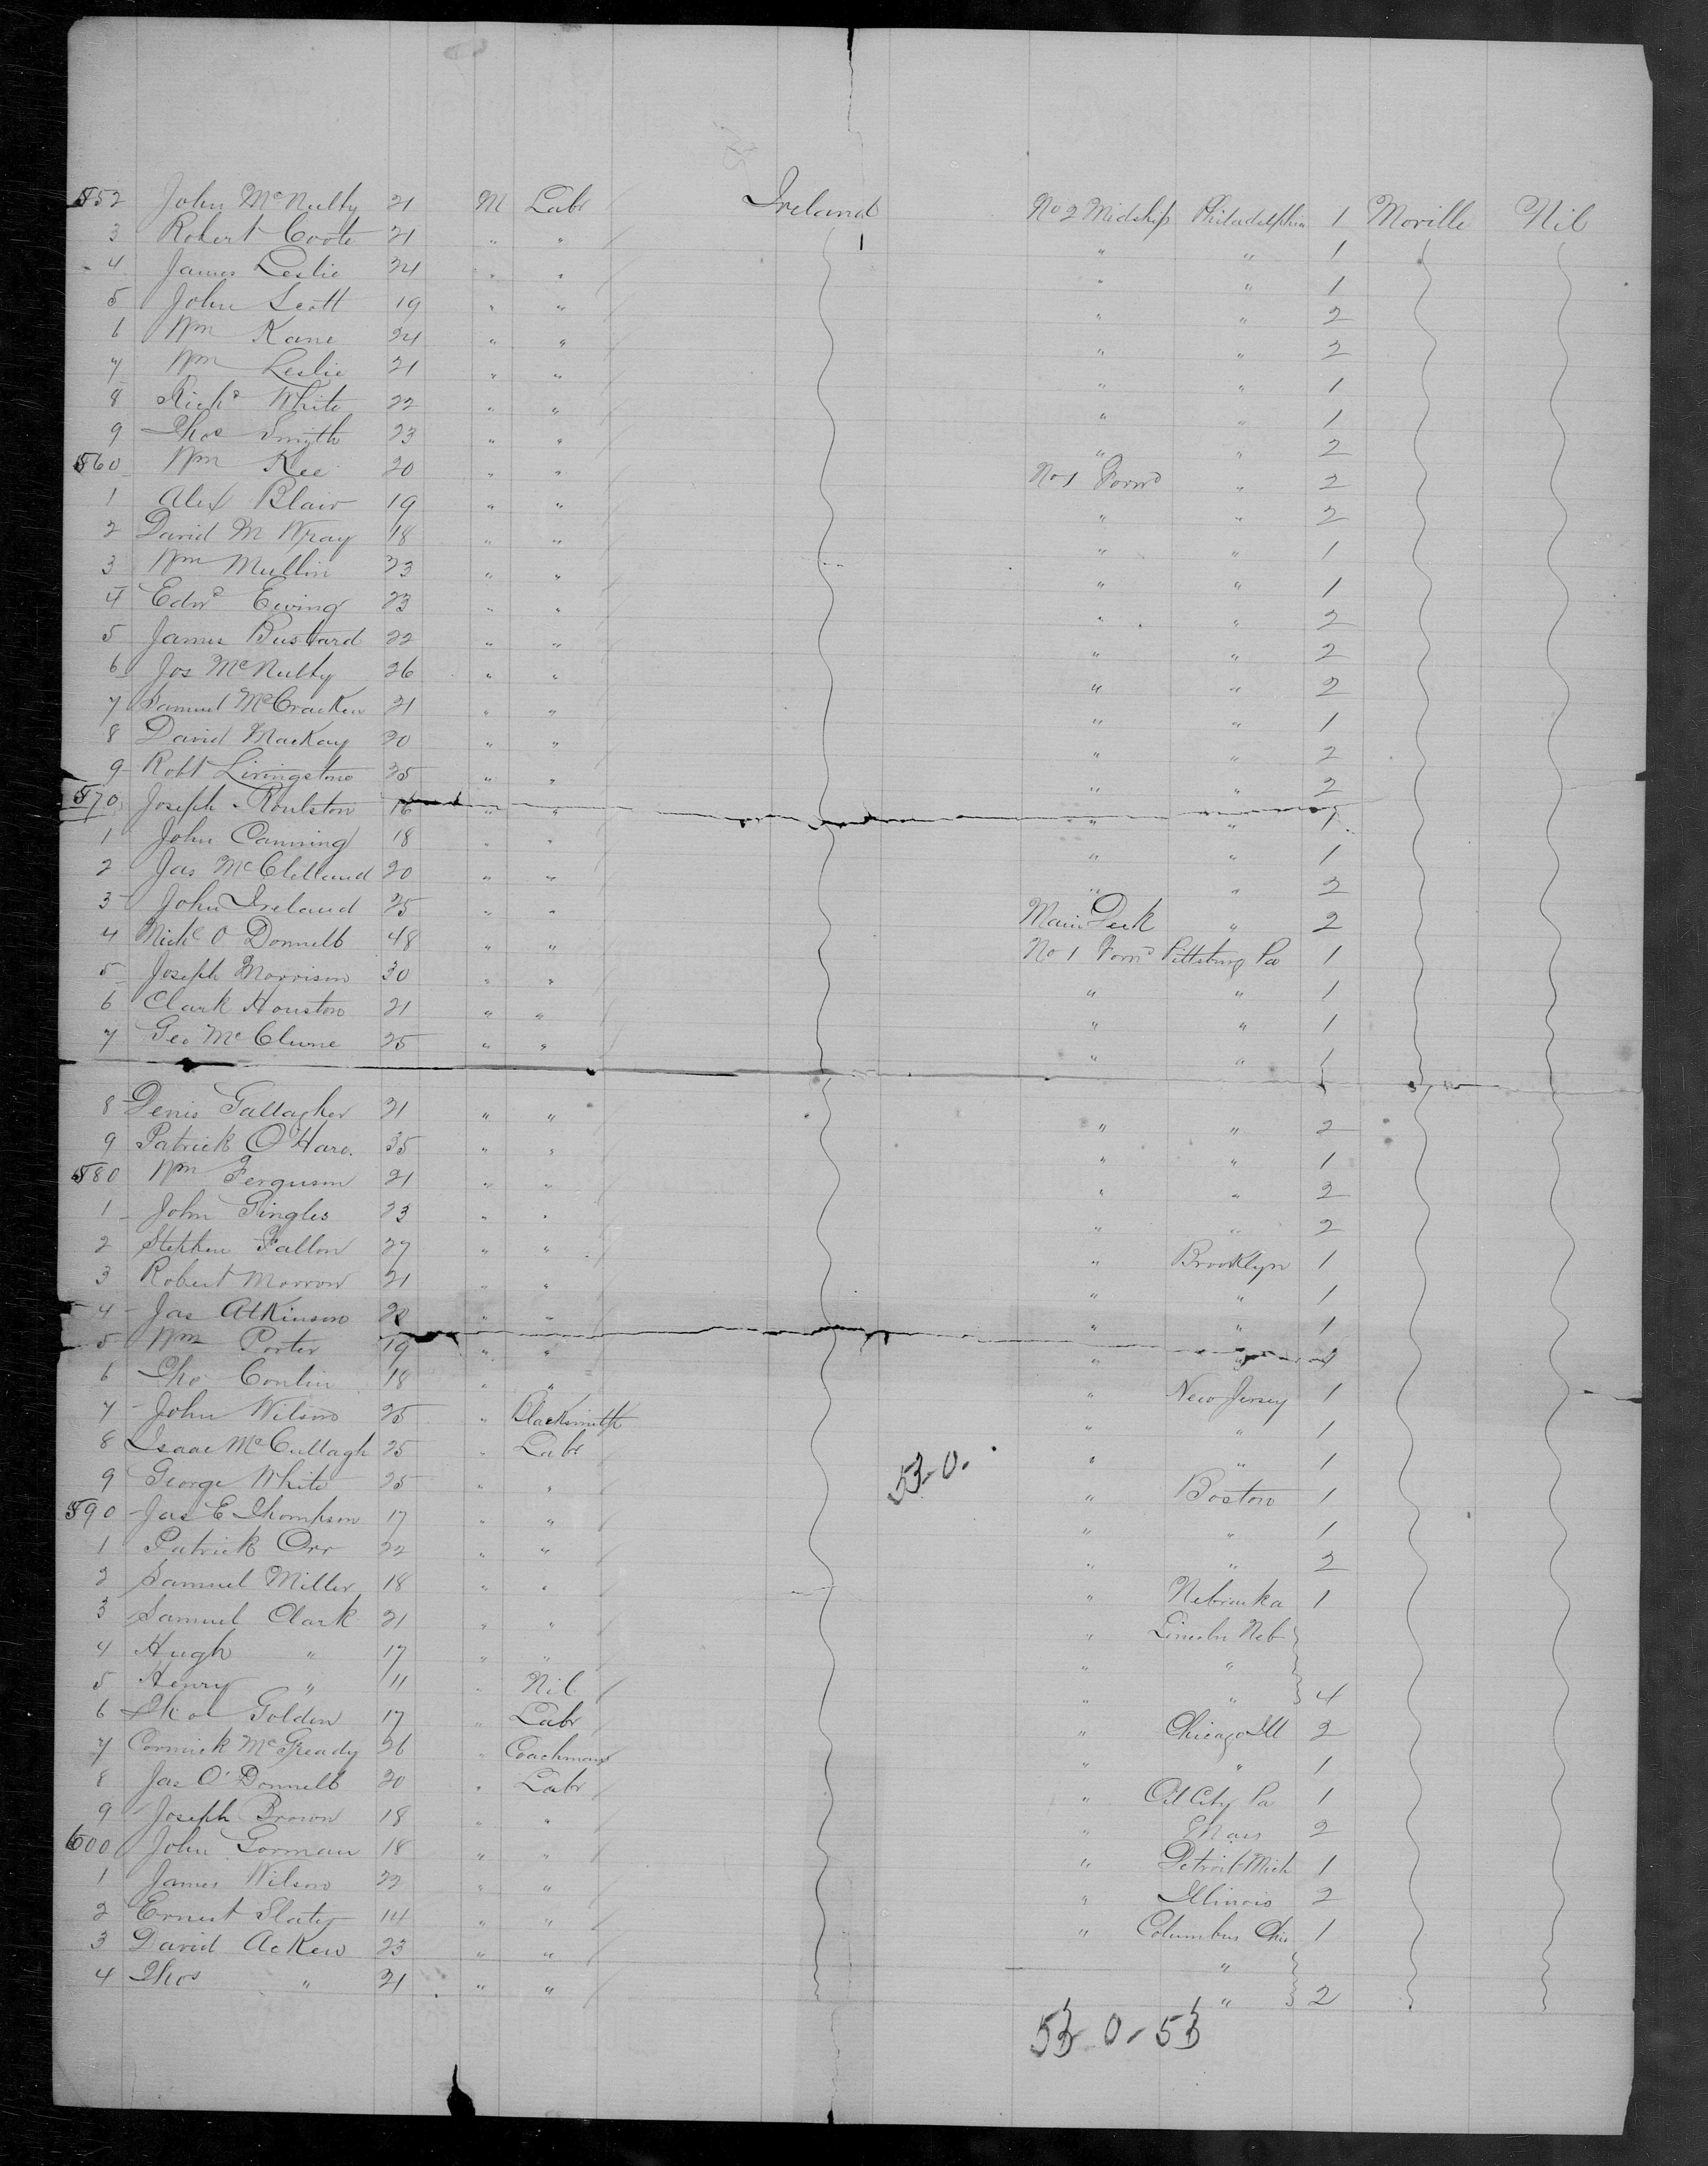 552 John McNulty 21 M Labr Ireland No 2 Midship Philadelphia 1 Moville Nil
3 Robert Coote 21 " " " " 1
4 James Leslie 24 " " " " 1
5 John Scott 19 " " " " 2
6 Wm Kane 24 " " " " 2
7 Wm Leslie 21 " " " " 1
8 Richd White 22 " " " " 1
9 Thos Smyth 23 " " " " 2
560 Wm Kee 20 " " No 1 Forwd " 2
1 Alex Blair 19 " " " " 2
2 David M Wray 18 " " " " 1
3 Wm Mullin 23 " " " " 1
4 Edwd Ewing 23 " " " " 2
5 James Bustard 22 " " " " 2
6 Jos McNulty 26 " " " " 2
7 Samuel McCracken 21 " " " " 1
8 David Mackay 20 " " " " 2
9 Robt Livingstone 35 " " " " 2
570 Joseph Roulston 16 " " " " 1
1 John Canning 18 " " " " 1
2 Jas McClelland 20 " " " " 2
3 John Ireland 25 " " Main Deck " 2
4 Michl O Donnell 48 " " No 1 Forwd Pittsburg Pa 1
5 Joseph Morrison 30 " " " " 1
6 Clark Houston 21 " " " " 1
7 Geo McClune 25 " " " " 1
8 Denis Gallagher 21 " " " " 2
9 Patrick O'Hare. 35 " " " " 1
580 Wm Ferguson 21 " " " " 2
1 John Gingles 23 " " " " 2
2 Stephen Fallon 27 " " " Brooklyn 1
3 Robert Morrow 21 " " " " 1
4 Jas Atkinson 22 " " " " 1
5 Wm Porter 19 " " " "
6 Tho Conlin 18 " " " New Jersey 1
7 John Wilson 25 " Blacksmith " " 1
8 Isaac McCullagh 25 " Labr " " 1
53-0.
9 George White 25 " " " Boston 1
590 Jas E Thompson 17 " " " " 1
1 Patrick Orr 22 " " " " 2
2 Samuel Miller 18 " " " Nebraska 1
3 Samuel Clark 21 " " " Lincoln Neb
4 Hugh " 17 " " " "
5 Henry " 11 " Nil " " 4
6 Thos Golden 17 " Labr " Chicago Ill 2
7 Cormick McGready 26 " Coachman " " 1
8 Jas O'Donnell 20 " Labr " Oil City Pa 1
9 Joseph Brown 18 " " " 2
600 John Gorman 18 " " " Detroit Mich 1
1 James Wilson 22 " " " Illinois 2
2 Ernest 14 " " " Columbus Ohio 1
3 David Acken 23 " " "
4 Thos " 21 " " " 2
53-0-53